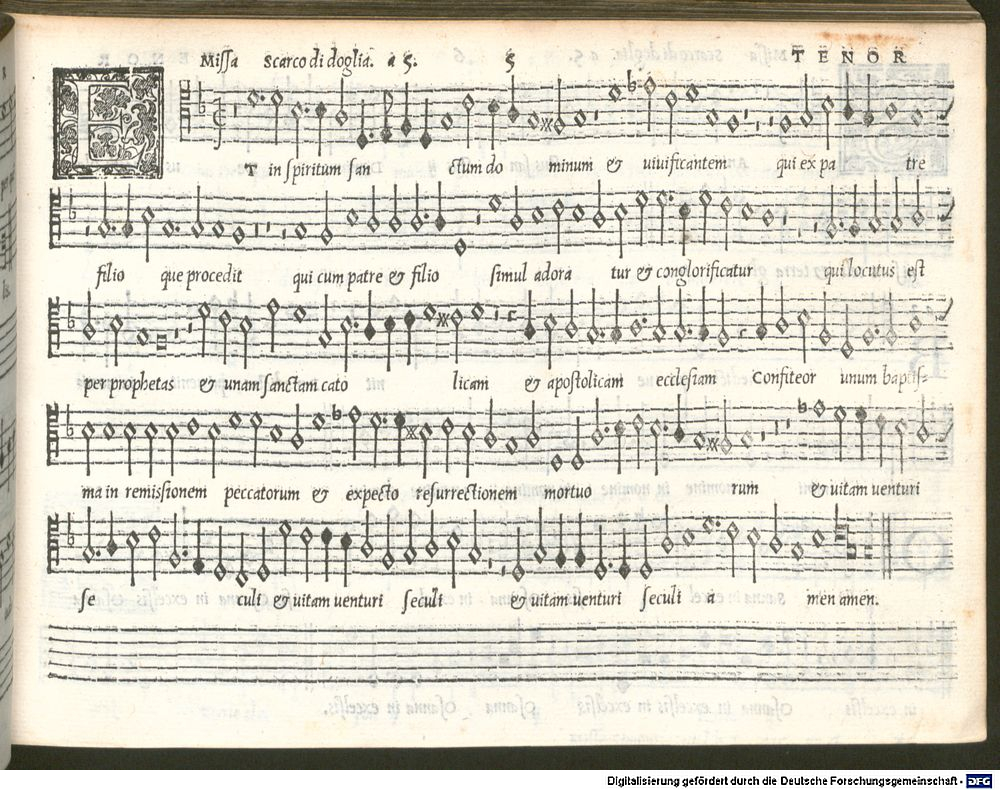 Missa Scarco di doglia. a 5. 5 TENOR
ET in spiritum san ctum do minum & uiuificantem qui ex pa tre
filio que procedit qui cum patre & filio simul adora tur & conglorificatur qui locutus est
per prophetas & unam sanctam cato licam & apostolicam ecclesiam Confiteor unum baptis=
ma in remissionem peccatorum & expecto resurrectionem mortuo rum & uitam uenturi
se culi & uitam uenturi seculi & uitam uenturi seculi a men amen.
Digitalisierung gefördert durch die Deutsche Forschungsgemeinschaft - DFG